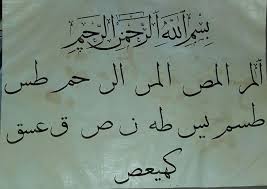 بسم الله الرحمن الرحيم
الم المص المر الر حم طس
طسم يس طه ن ص ق عسق
كهيعص